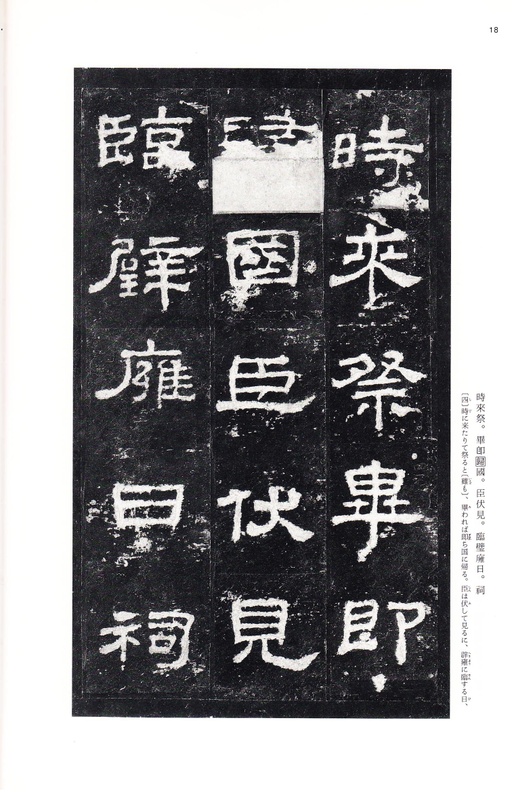 18
時來祭畢即
國臣伏見
臨辟雍日祠
時來祭。畢卽歸國。臣伏見。臨璧雍日。祠
〔四〕時に来たりて祭ると〔雖も〕、畢われば即ち国に帰る。臣は伏して見るに、辟雍に臨する日、